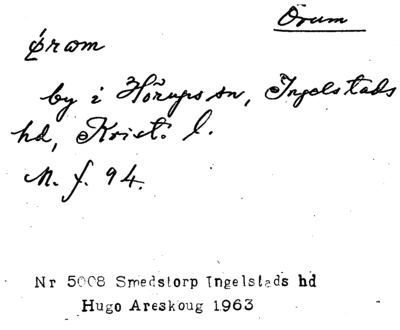 Örum
ǿrȧm
by i Hörups sn, Ingelstads
hd, Krist. l.
M. f. 94.
Nr 5008 Smedstorp Ingelstads hd
Hugo Areskoug 1963